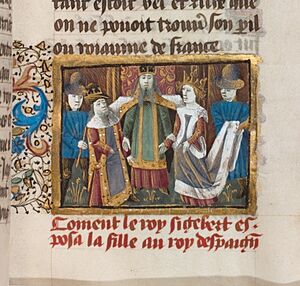 tant estoit bel et riche que
on ne pouoit trouuer son pil
ou royaume de france
Coment le roy sigebert es-
posa la fille au roy despaign